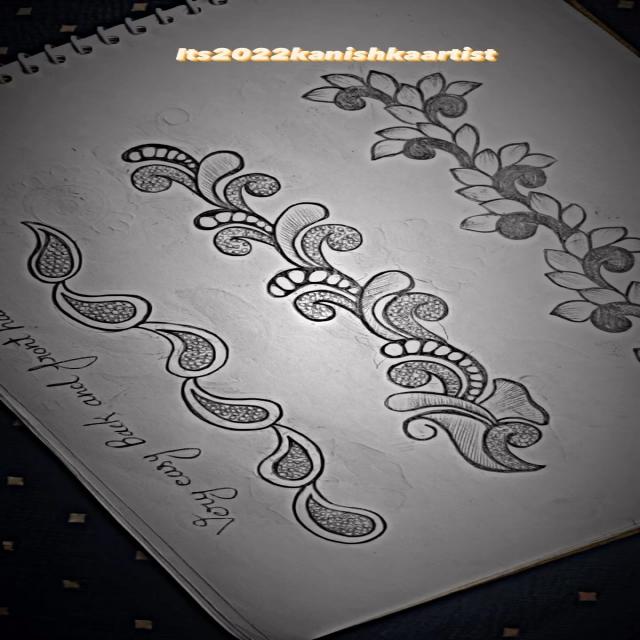 Its2022kanishkaartist
Very easy Back and front ha